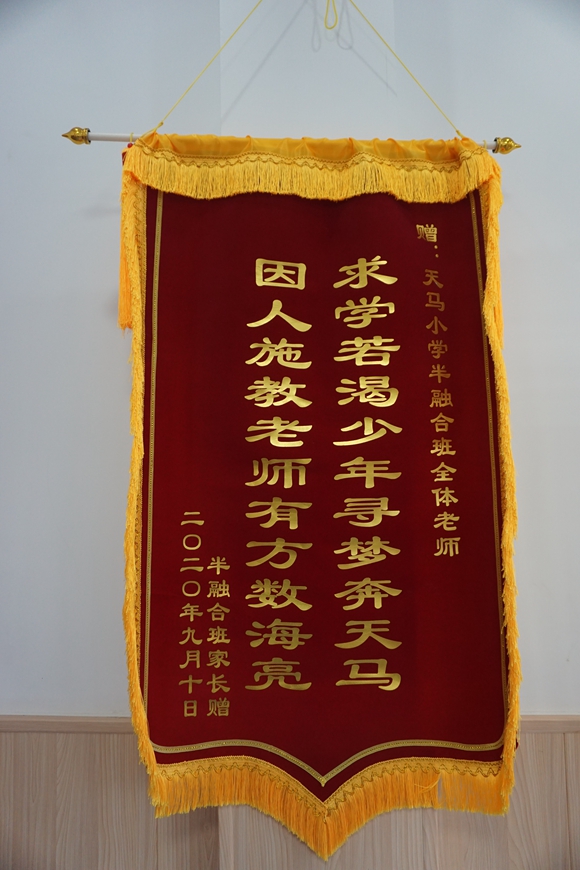 赠：天马小学半融合班全体老师
求学若渴少年寻梦奔天马
因人施教老师有方数海亮
半融合班家长赠
二〇二〇年九月十日